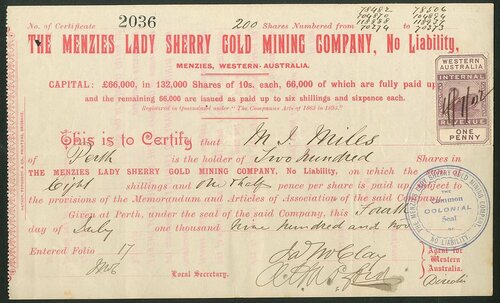 No. of Certificate 2036 200 Shares Numbered from 78482 to 78506
104870 104894
118858
70274 70373
THE MENZIES LADY SHERRY GOLD MINING COMPANY, No Liability,
MENZIES, WESTERN-AUSTRALIA.
CAPITAL: £66,000, in 132,000 Shares of 10s. each, 66,000 of which are fully paid up
and the remaining 66,000 are issued as paid up to six shillings and sixpence each.
Registered in Queensland under "The Companies Acts of 1863 to 1893."
WESTERN AUSTRALIA
INTERNAL
REVENUE
ONE PENNY
This is to Certify that M. J. Miles
of Perth is the holder of Two Hundred Shares in
THE MENZIES LADY SHERRY GOLD MINING COMPANY, No Liability, on which the
Eight shillings and one half pence per share is paid up, subject to
the provisions of the Memorandum and Articles of Association of the said Company.
Given at Perth, under the seal of the said Company, this Fourth
day of July one thousand nine hundred and two
Entered Folio 17
Local Secretary.
Agent for
Western
Australia.
THE MENZIES LADY SHERRY GOLD MINING COMPANY,
NO LIABILITY
Common
COLONIAL
Seal